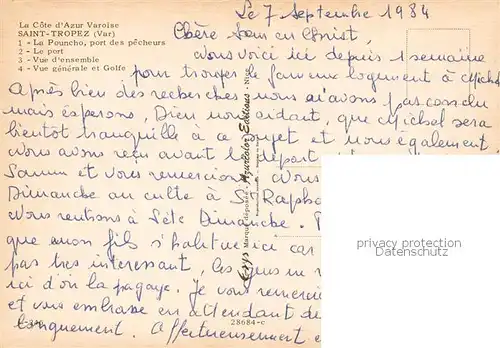 La Côte d'Azur Varoise
SAINT-TROPEZ (Var)
1 - La Pouncho, port des pêcheurs
2 - Le port
3 - Vue d'ensemble
4 - Vue générale et Golfe
Le 7 Septembre 1984
Chère Sœur en Christ,
Nous voici ici depuis 1 semaine
pour trouver le fameux logement à Michel
Après bien des recherches nous n'avons pas conclu
mais espérons, Dieu nous aidant, que Michel sera
bientôt tranquille à ce sujet et nous également
Nous avons reçu avant le départ
et vous remercions. Nous
Dimanche au culte à St Rapha
Nous rentrons à Sète Dimanche.
que mon fils s'habitue ici car
pas très intéressant, les gens
ici d'on la pagaye. Je vous remercie
et vous embrasse en attendant de
longuement. Affectueusement e
Krys Marque déposée - Azurcolor Editions - Nice
28684-c
privacy protection
Datenschutz